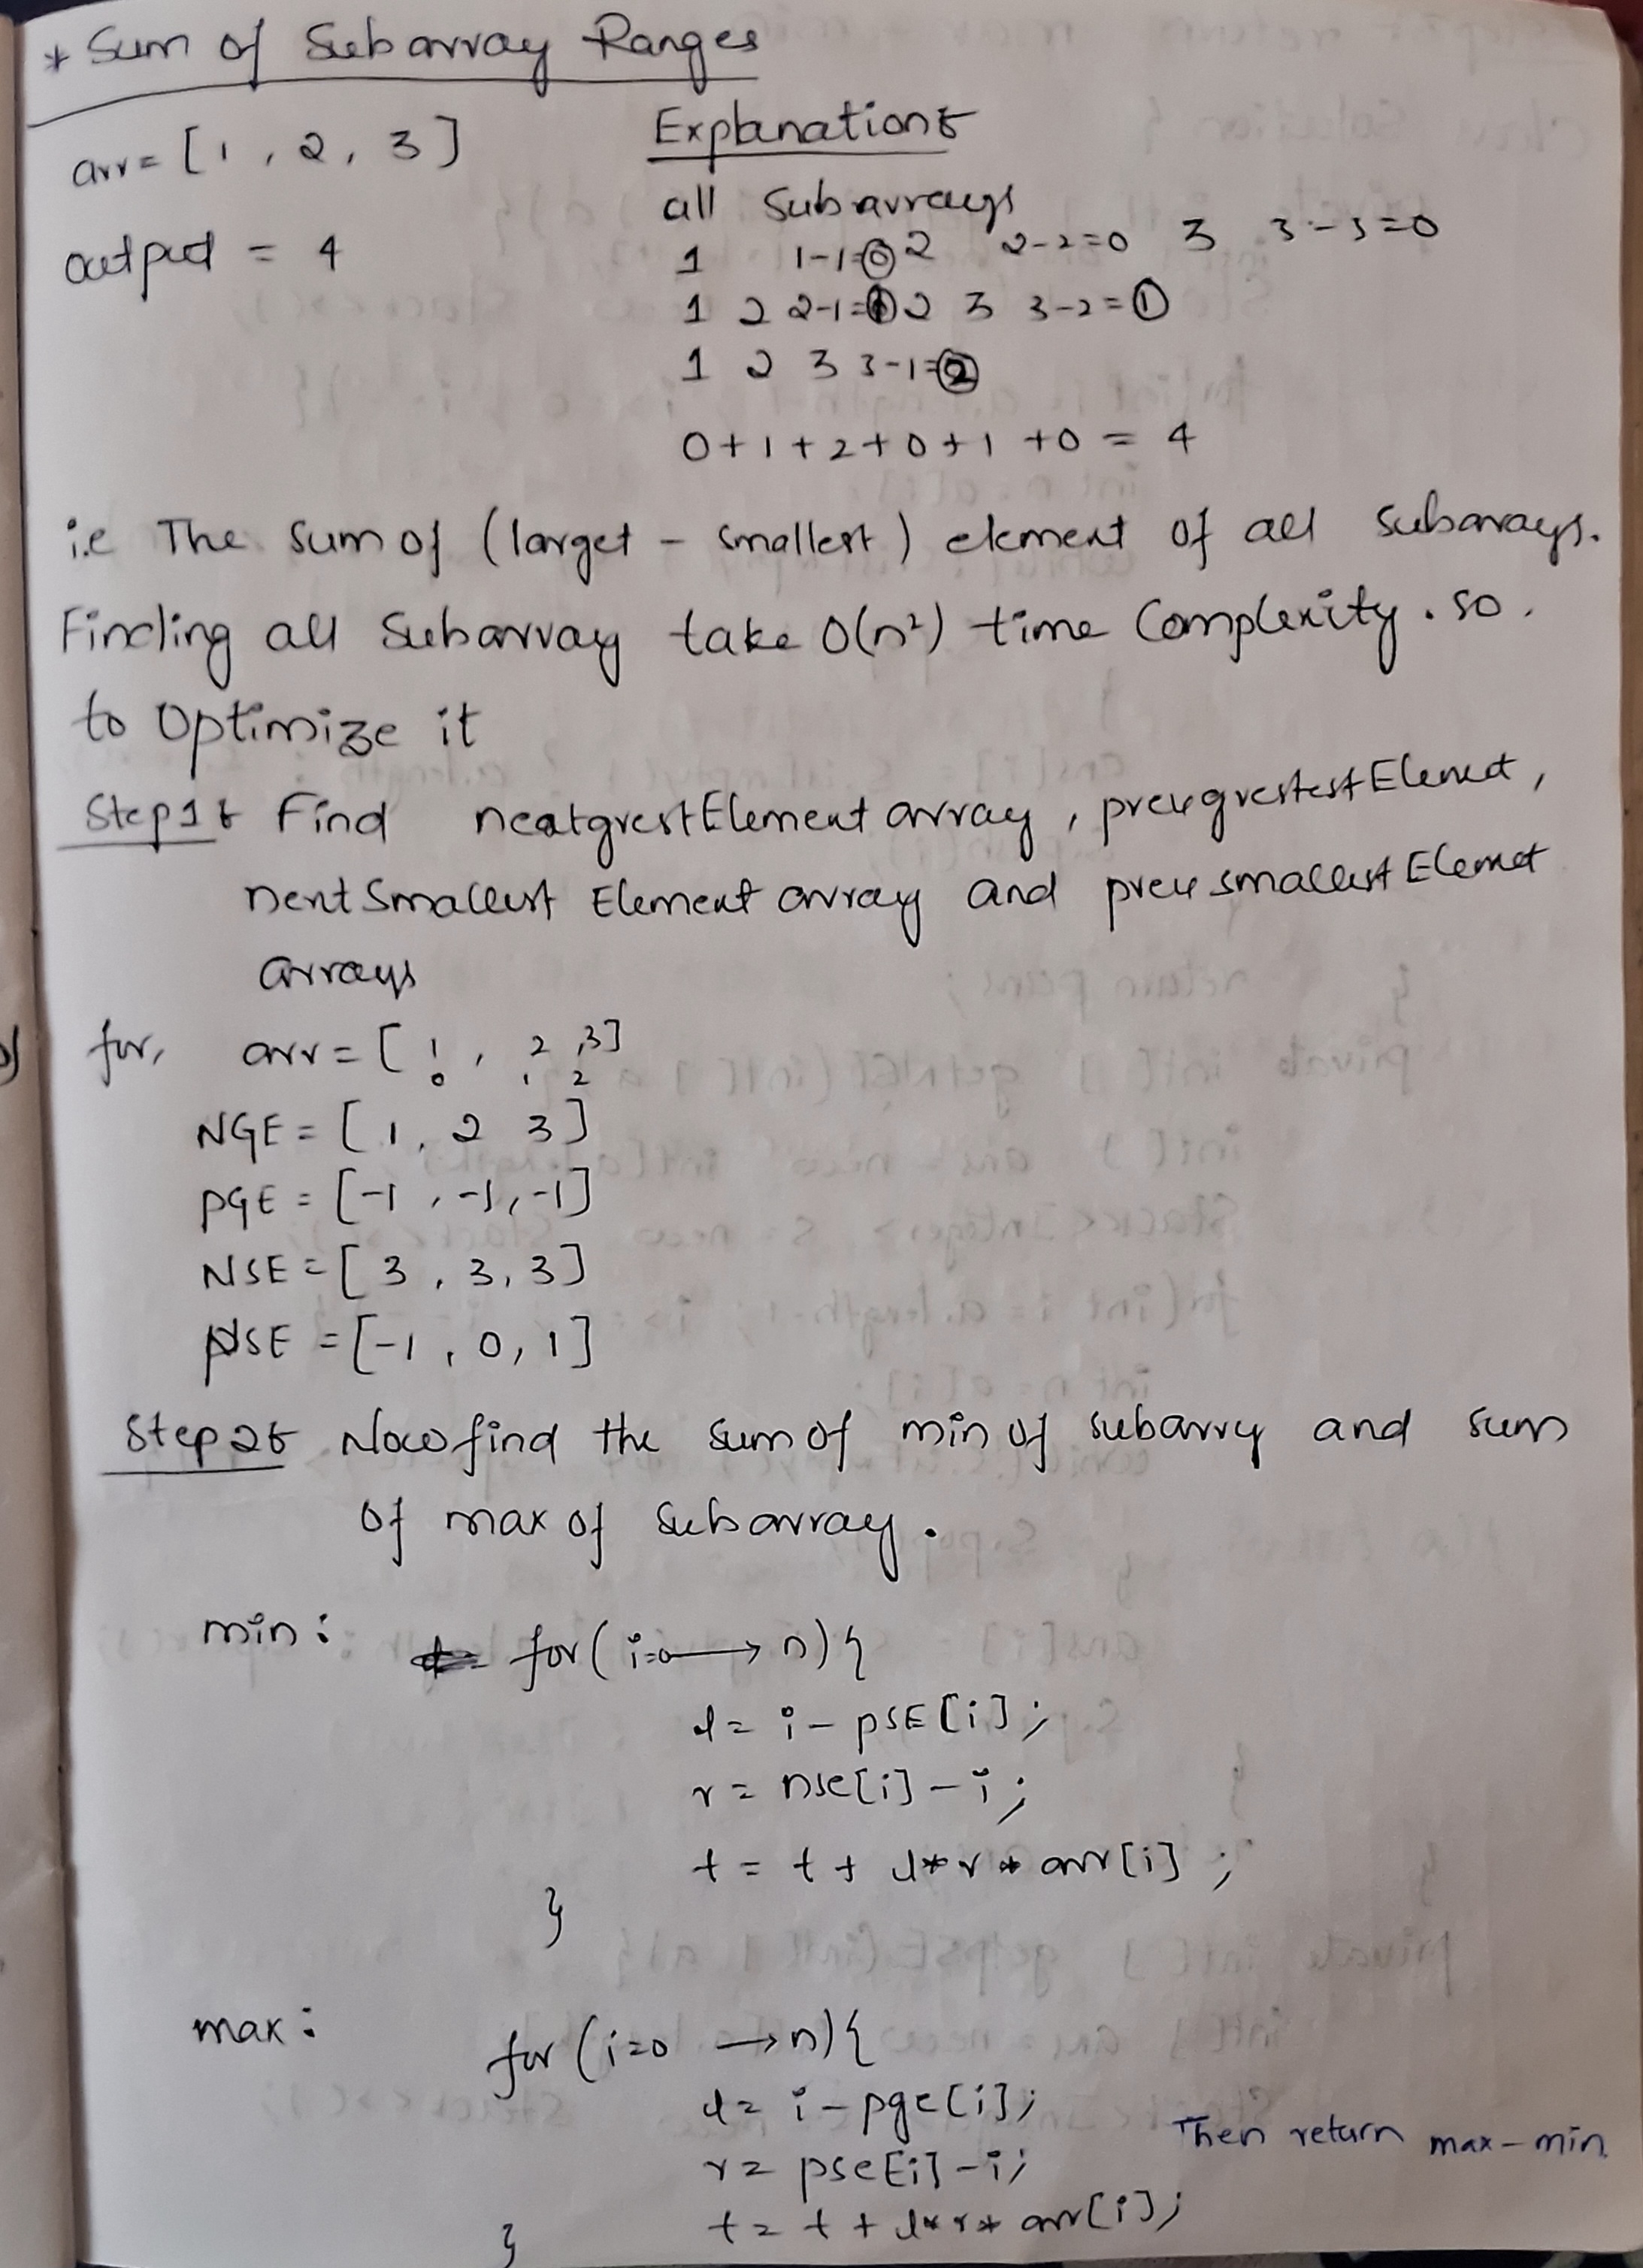 * Sum of Subarray Ranges
arr = [1, 2, 3]
output = 4
Explanation:
all subarrays
1 1-1=0 2 2-2=0 3 3-3=0
1 2 2-1=1 2 3 3-2=1
1 2 3 3-1=2
0+1+2+0+1+0 = 4
i.e The sum of (larget - smallest) element of all subarays.
Finding all Subarray take O(n²) time Complexity. so.
to Optimize it
Step1: Find nextgrestElement array, prevgrestestElemet,
nextSmallest Element array and prevsmallest Elemet
arrays
for, arr = [1, 2, 3]
0 1 2
NGE = [1, 2 3]
PGE = [-1, -1, -1]
NSE = [3, 3, 3]
PSE = [-1, 0, 1]
Step 2: Now find the sum of min of subarry and sum
of max of subarray.
min: for(i=0 → n){
l = i - PSE[i];
r = nse[i] - i;
t = t + l*r*arr[i];
}
max: for (i=0 → n){
l = i - pge[i];
r = pse[i] - i;
t = t + l*r*arr[i];
}
Then return max-min